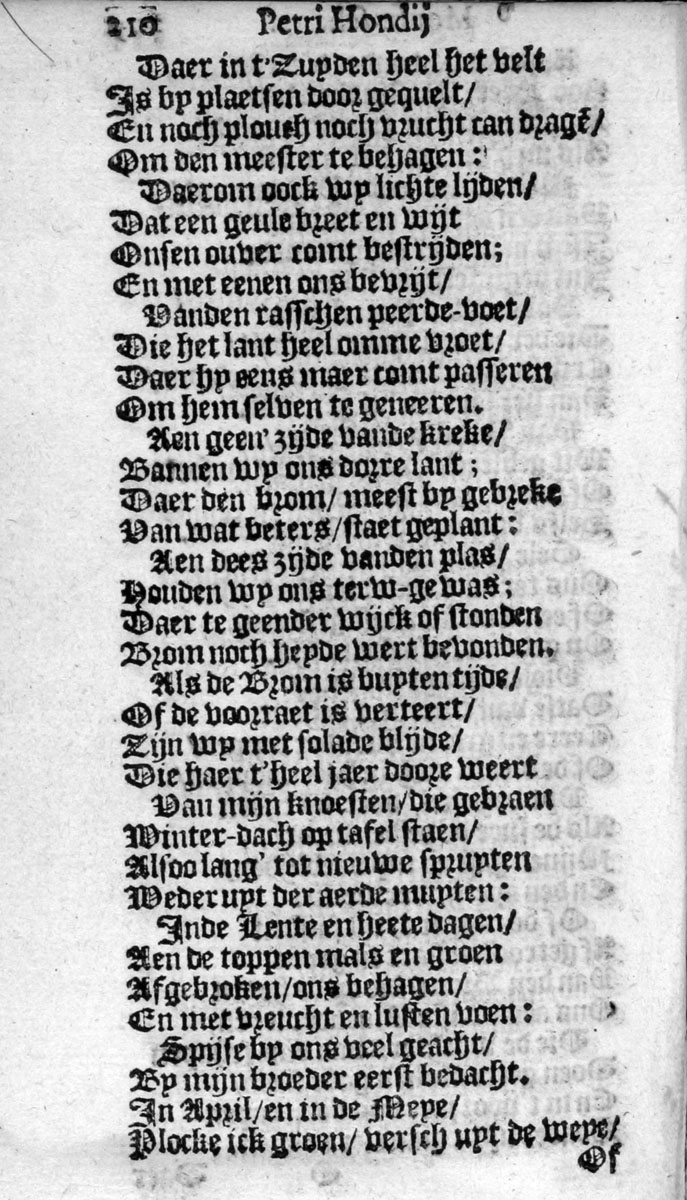 210 Petri Hondij
Daer in t'Zuyden heel het velt
Is by plaetsen door gequelt/
En noch plough noch vrucht can dragẽ/
Om den meester te behagen:
Daerom oock wy lichte lijden/
Dat een geule breet en wijt
Onsen ouver comt bestrijden;
En met eenen ons bevrijt/
Vanden rasschen peerde-voet/
Die het lant heel omme vroet/
Daer hy eens maer comt passeren
Om hem selven te geneeren.
Aen geen' zijde vande kreke/
Bannen wy ons dorre lant;
Daer den brom/ meest by gebreke
Van wat beters/staet geplant:
Aen dees zijde vanden plas/
Houden wy ons terw-gewas;
Daer te geender wijck of stonden
Brom noch heyde wert bevonden.
Als de Brom is buyten tijde/
Of de voorraet is verteert/
Zijn wy met solade blijde/
Die haer t'heel jaer doore weert
Van mijn knoesten/die gebraen
Winter-dach op tafel staen/
Alsoo lang' tot nieuwe spruyten
Weder uyt der aerde muyten:
Inde Lente en heete dagen/
Aen de toppen mals en groen
Afgebroken/ons behagen/
En met vreucht en lusten voen:
Spijse by ons veel geacht/
By mijn broeder eerst bedacht.
In April/en in de Meye/
Plocke ick groen/ versch uyt de weye/
Of